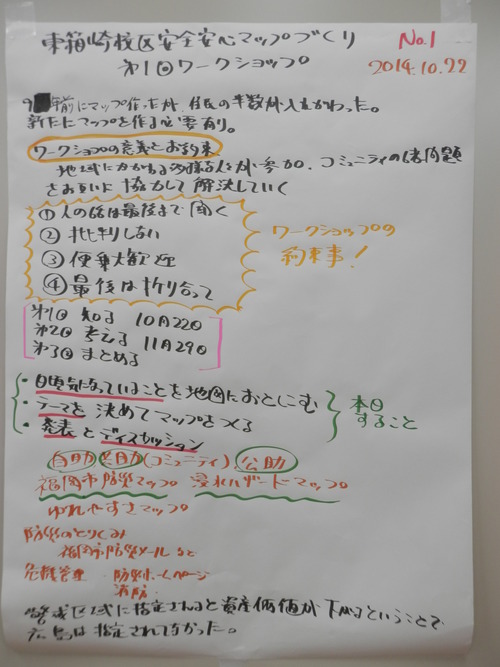 東箱崎校区安全安心マップづくり
No.1
第1回ワークショップ
2014.10.22
9年前にマップ作ったが、住民の半数が入れかわった。
新たにマップを作る必要有り。
ワークショップの意義とお約束
地域にかかわる多様な人が参加、コミュニティの諸問題
をお互いに協力して解決していく
①人の話は最後まで聞く
②批判しない
③便乗大歓迎
④最後は折り合って
ワークショップの
約束事!
第1回 知る 10月22日
第2回 考える 11月29日
第3回 まとめる
・日頃気になっていることを地図におとしこむ
・テーマを決めてマップをつくる
・発表とディスカッション
本日
すること
自助 共助(コミュニティ) 公助
福岡市防災マップ 浸水ハザードマップ
ゆれやすさマップ
防災のとりくみ
福岡市防災メールなど
危機管理 防災ホームページ
消防
警戒区域に指定されると資産価値が下がるということで
は指定されてなかった。